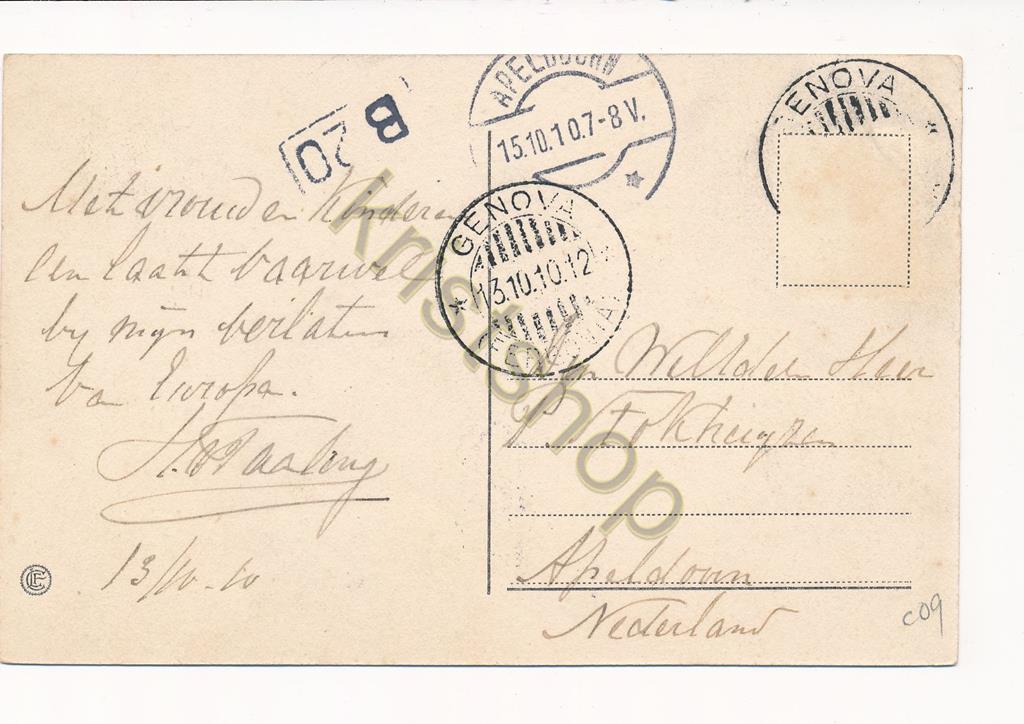 B
20
APELDOORN
15.10.10.7-8V.
GENOVA
GENOVA
13.10.10.12
Met vrouw en Kinderen
een laatst vaarwel
by mijn verlaten
van Europa.
13/10-10
Wellden Heer
Apeldoorn
Nederland
c09
kristshop